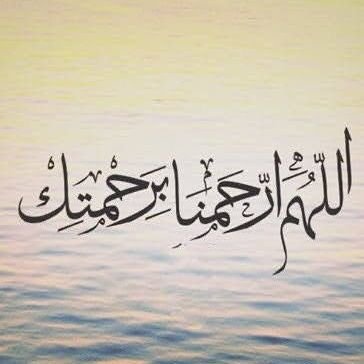 اللّهُمَ ارّحَمنَا بِرَحْمتِك